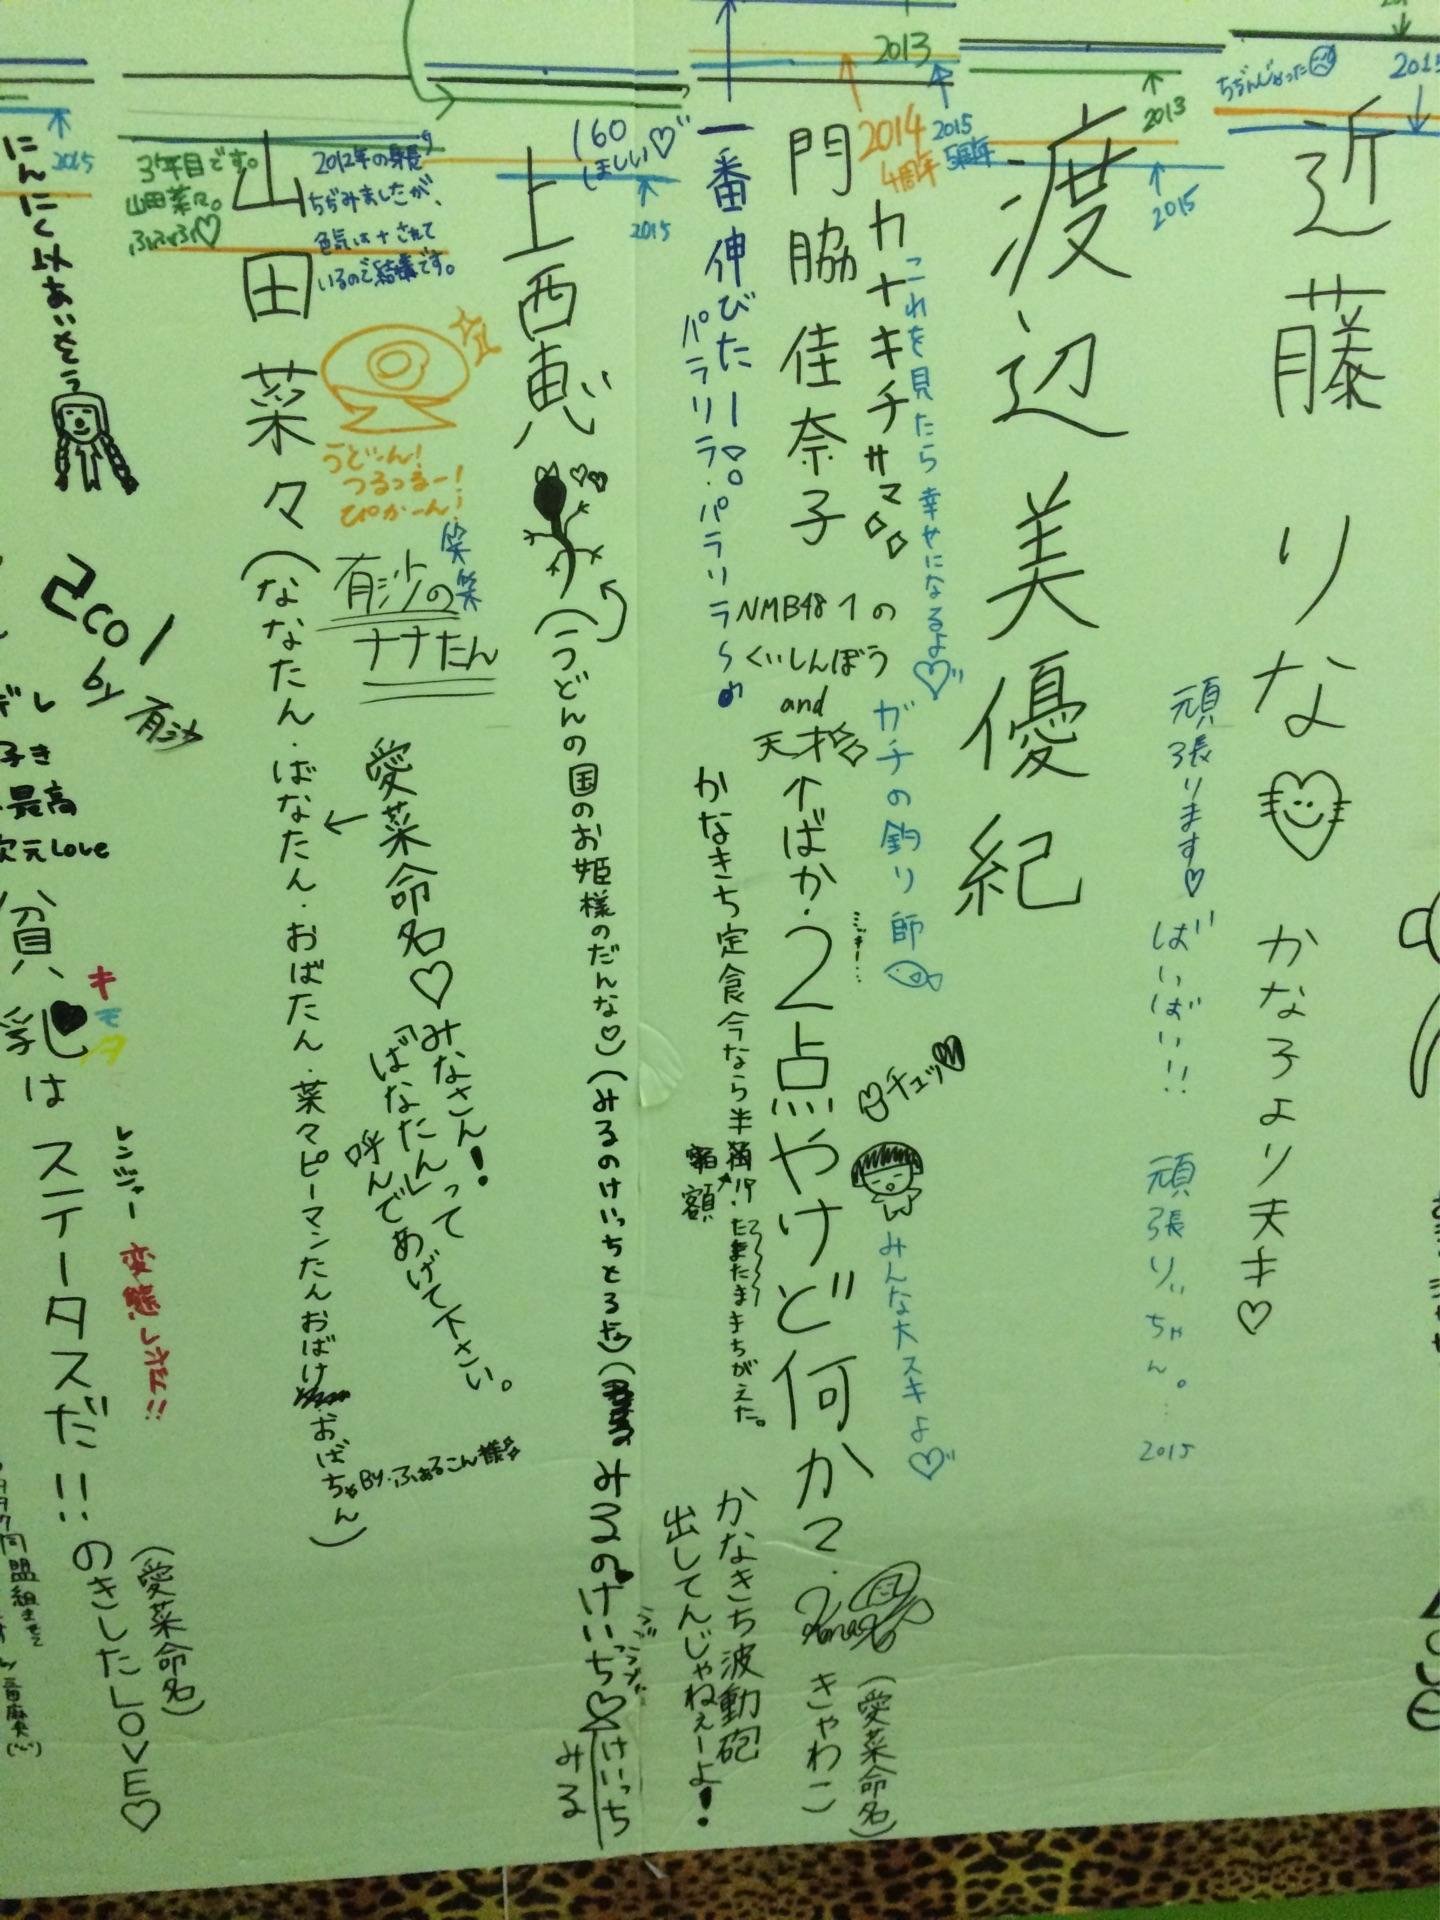 2015
ちぢんじゃった
近藤りな♡
かなろより大キ♡
頑張ります♡ばいばい!!
頑張りぃちゃん。
2015
2013
2015
渡辺美優紀
2013
2014
4周年
2015
5周年
カナキチサマ
これを見たら幸せになるよ♡
ガチの釣り師
チュッ
みんな大スキよ♡
門脇佳奈子
NMB48 1の
くいしんぼう
and
天才
↑ばか・2点やけど何か?
きゃわこ
(愛菜命名)
一番伸びたー
パラリラ・パラリラ〜♪
かなきち定食今なら半額!!
額
たまたままちがえた。
かなきち波動砲
出してんじゃねぇーよ!
160
ほしい♡
2015
上西恵
(うどんの国のお姫様のだんな♡)
みるのけいっち♡
けいっち
みる
2012年の身長より
ちぢみましたが、
色気は+されて
いるので結構です。
うどーん!
つるつるー!
ぴかーん!
笑笑
有沙の
ナナたん
愛菜命名♡
みなさん!
「ばなたん」って
呼んであげて下さい。
By.ふぁるこん様
3年目です。
山田菜々。
ふふふ♡
山田菜々
(ななたん・ばなたん・おばたん・菜々ピーマンたんおばけ
おばちゃん)
2015
にんにく以あいそう
by 有沙
最高
次元Love
貧乳はステータスだ!!
キモタ
レンジャー
変態レンド!!
のきしたLOVE♡
(愛菜命名)
同盟組ませて